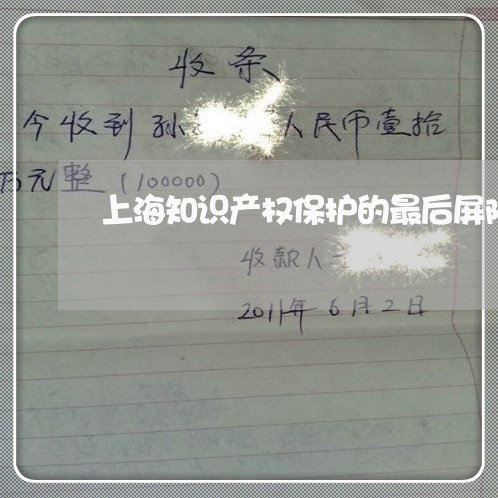 收条
今收到孙 人民币壹拾
万元整(100000)
上海知识产权保护的最后屏障
收款人
2011年6月2日